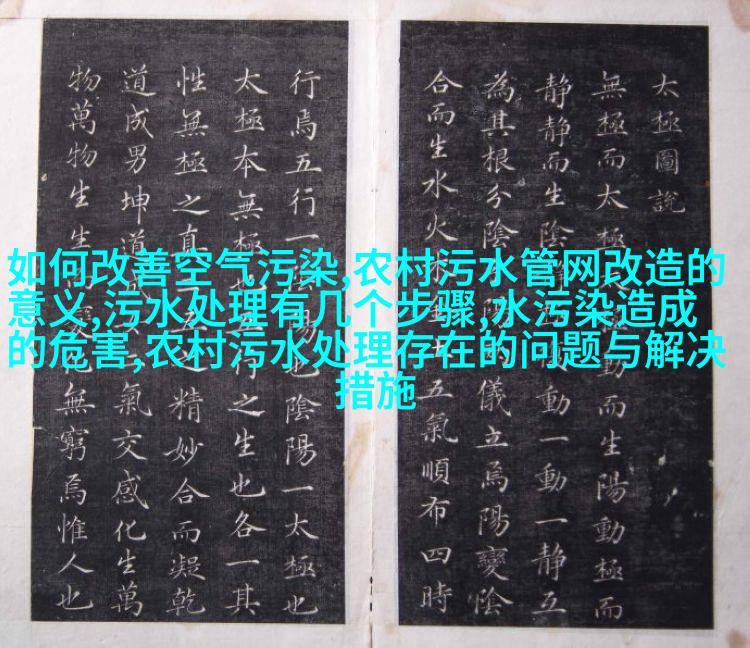 如何改善空气污染,农村污水管网改造的
意义,污水处理有几个步骤,水污染造成
的危害,农村污水处理存在的问题与解决
措施
太極圖說
無極而太極動而生陽動極而
静静而生陰動一動一静互
為其根分陰陽儀立焉陽變陰
合而生水火五氣順布四時
行焉五行一陽也陰陽一太極也
太極本無極也行之生也各一其
性無極之真五精妙合而凝乾
道成男坤道氣交感化生萬
物萬物生生化無窮焉惟人也